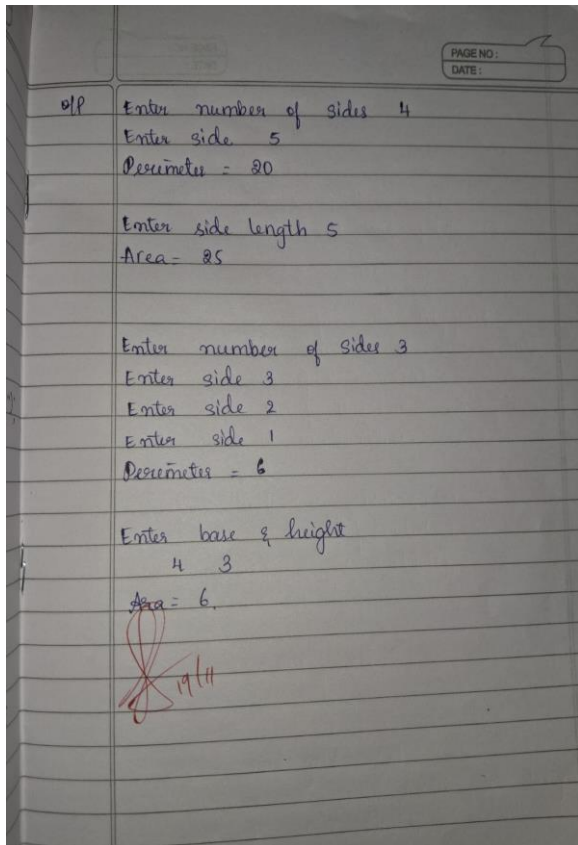 PAGE NO :
DATE :
o/p Enter number of sides 4
Enter side 5
Perimeter = 20
Enter side length 5
Area = 25
Enter number of sides 3
Enter side 3
Enter side 2
Enter side 1
Perimeter = 6
Enter base & height
4 3
Area = 6.
19/11